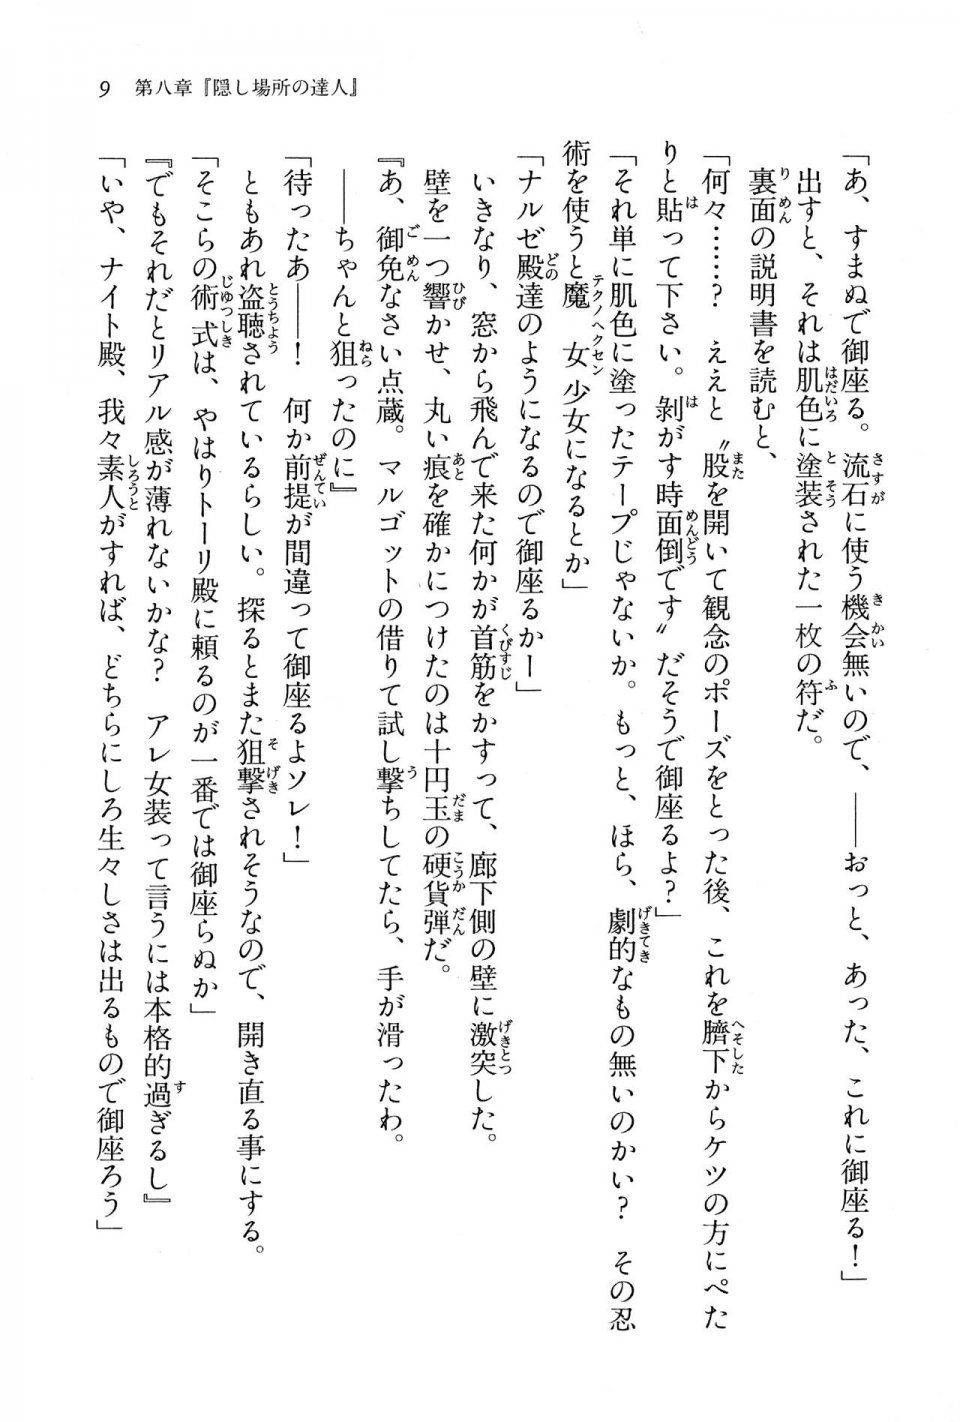 9 第八章『隠し場所の達人』
「あ、すまぬで御座る。流石に使う機会無いので、――おっと、あった、これに御座る！」
出すと、それは肌色に塗装された一枚の符だ。
裏面の説明書を読むと、
「何々……？　ええと〝股を開いて観念のポーズをとった後、これを臍下からケツの方にぺた
りと貼って下さい。剝がす時面倒です〟だそうで御座るよ？」
「それ単に肌色に塗ったテープじゃないか。もっと、ほら、劇的なもの無いのかい？　その忍
術を使うと魔女少女になるとか」
「ナルゼ殿達のようになるので御座るかー」
いきなり、窓から飛んで来た何かが首筋をかすって、廊下側の壁に激突した。
壁を一つ響かせ、丸い痕を確かにつけたのは十円玉の硬貨弾だ。
『あ、御免なさい点蔵。マルゴットの借りて試し撃ちしてたら、手が滑ったわ。
――ちゃんと狙ったのに』
「待ったあ――！　何か前提が間違って御座るよソレ！」
ともあれ盗聴されているらしい。探るとまた狙撃されそうなので、開き直る事にする。
「そこらの術式は、やはりトーリ殿に頼るのが一番では御座らぬか」
『でもそれだとリアル感が薄れないかな？　アレ女装って言うには本格的過ぎるし』
「いや、ナイト殿、我々素人がすれば、どちらにしろ生々しさは出るもので御座ろう」